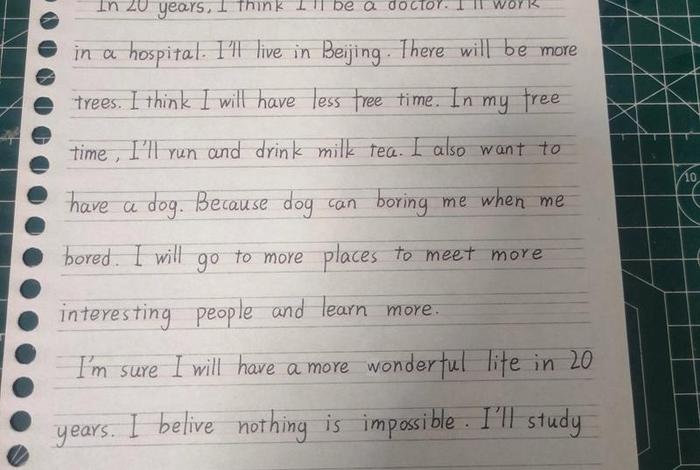 In 20 years, I think I'll be a doctor. I'll work
in a hospital. I'll live in Beijing. There will be more
trees. I think I will have less free time. In my free
time, I'll run and drink milk tea. I also want to
have a dog. Because dog can boring me when me
bored. I will go to more places to meet more
interesting people and learn more.
I'm sure I will have a more wonderful life in 20
years. I belive nothing is impossible. I'll study
10